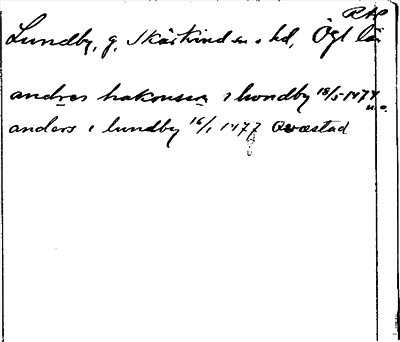 RAP
Lundby, g, Skärkind sn o hd, Ögl län
andres hakonson i londby 18/5 1474 u.o.
anders i lundby 16/1 1477 Qvæstad